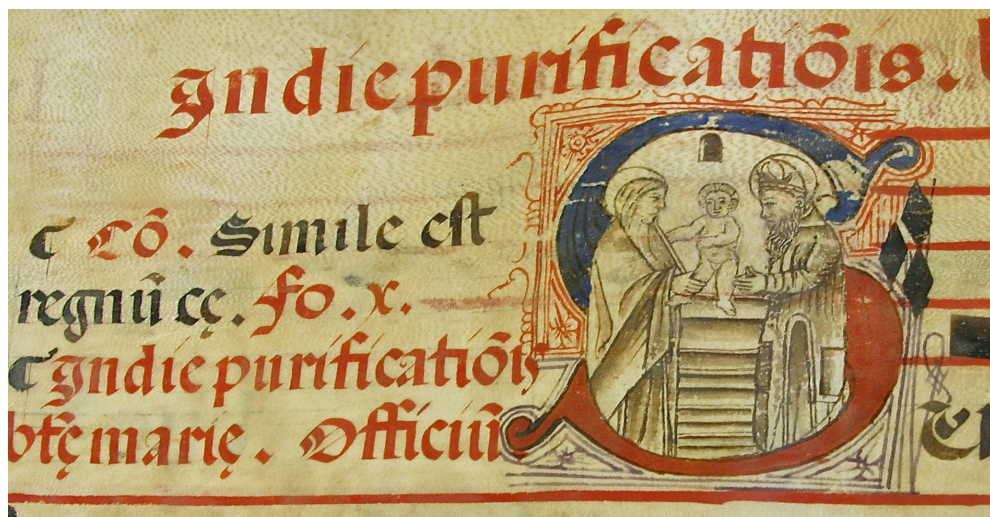 Indie purificatiōis.
C Cō. Simile est
regnū cę. fo. x.
C Indie purificatiōis
btę marię. Officiū
S